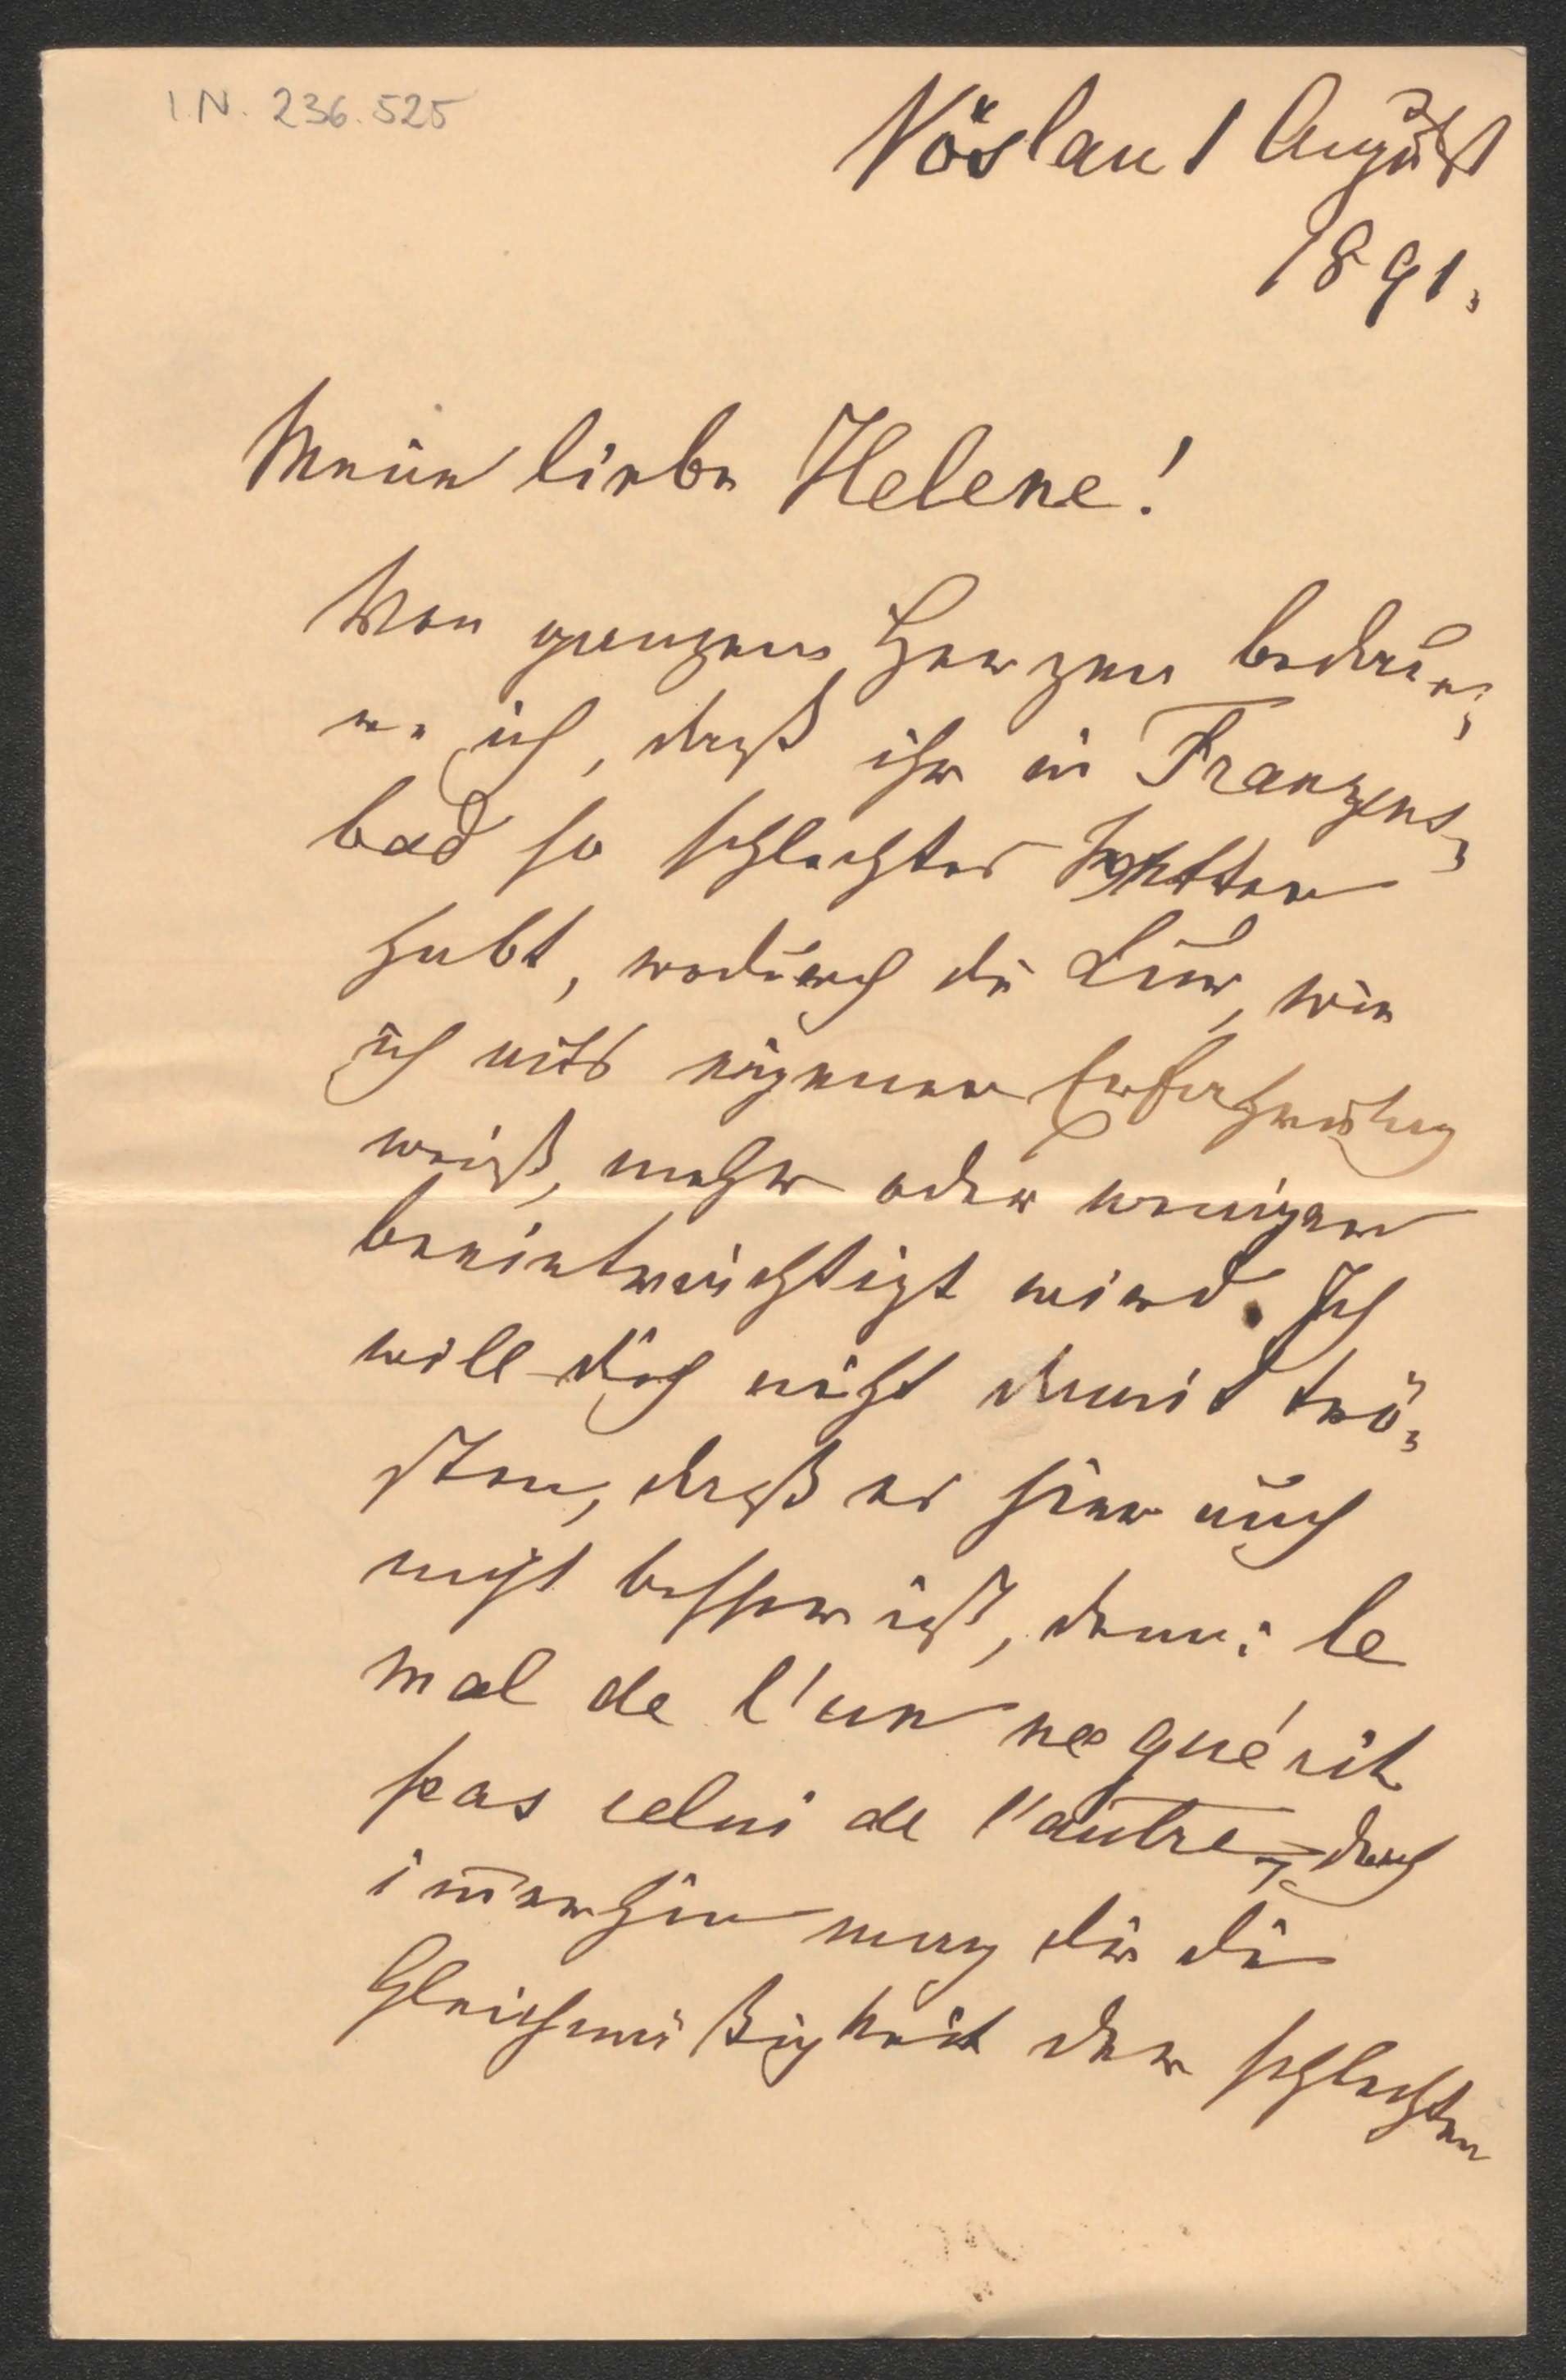 I.N. 236.525
Vöslau 1 August
1891.
Meine liebe Helene!
Von ganzem Herzen bedaue-
re ich, daß ihr in Franzens-
bad so schlechtes Wetter
habt, wodurch die Kur, wie
ich aus eigener Erfahrung
weiß, mehr oder weniger
beeinträchtigt wird. Ich
will dich nicht damit trö-
sten, daß es hier auch
nicht besser ist, denn: le
mal de l'un ne guérit
pas celui de l'autre, doch
im̅erhin mag dir die
Gleichmäßigkeit der schlechten